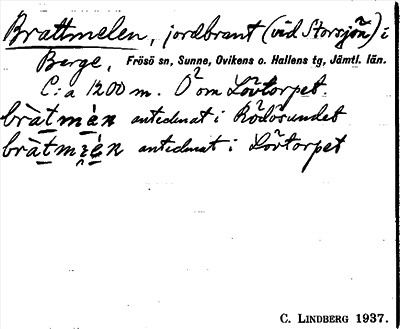 Brattmelen, jordbrant (vid Storsjön) i
Berge, Frösö sn, Sunne, Ovikens o. Hallens tg, Jämtl. län.
C:a 1200 m. Ö om Lövtorpet.
bràtmèn antecknat i Rödösundet
bràtmi̯èn antecknat i Lövtorpet
C. LINDBERG 1937.